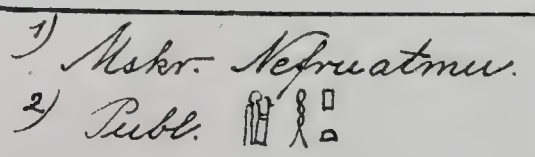 1) Mskr. Nefruatmu.
2) Publ.